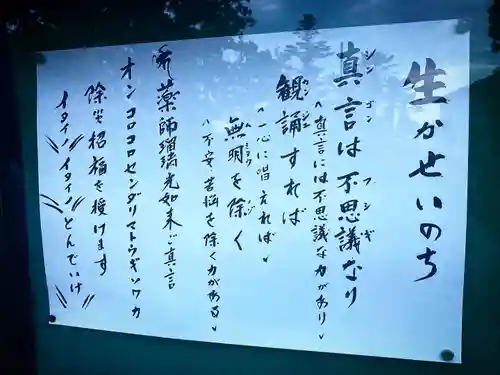 生かせいのち
真言は不思議なり
シンゴン
フシギ
〈真言には不思議な力があり〉
観誦すれば
カンジュ
〈一心に唱えれば〉
無明を除く
〈不安苦悩を除く力がある〉
薬師瑠璃光如来ご真言
オンコロコロセンダリマトウギソワカ
除災招福を授けます
イタイノイタイノとんでいけ